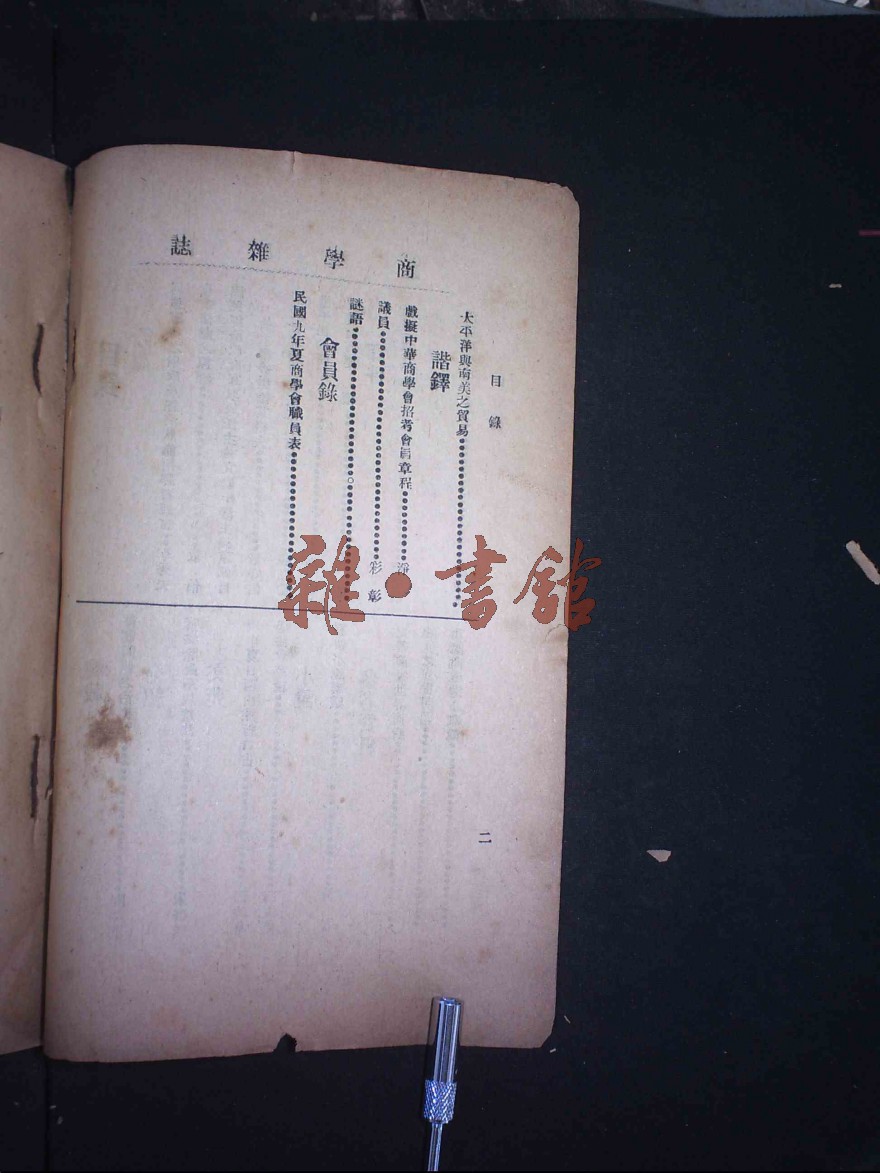 商學雜誌
目錄
二
太平洋與南美之貿易
諧鐸
戲擬中華商學會招考會員章程
議員 彩彰
謎語
會員錄
民國九年夏商學會職員表
雜·書館